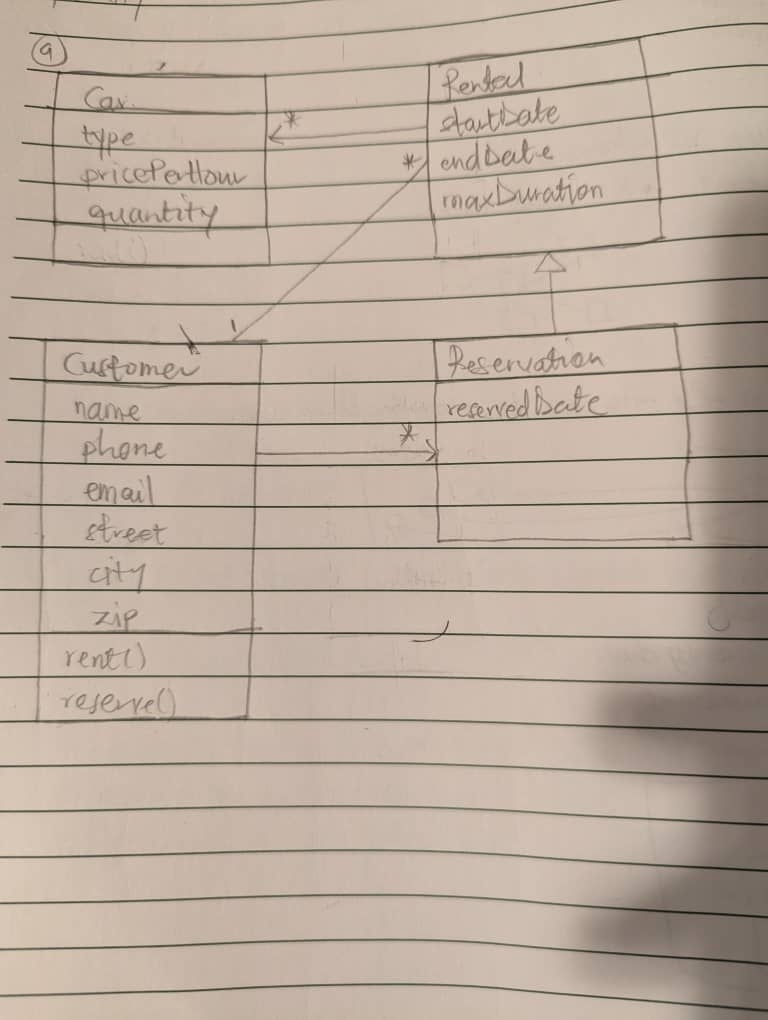 9
Car
type
pricePerHour
quantity
*
Rental
startDate
endDate
maxDuration
*
1
Customer
name
phone
email
street
city
zip
rent()
reserve()
*
Reservation
reservedDate